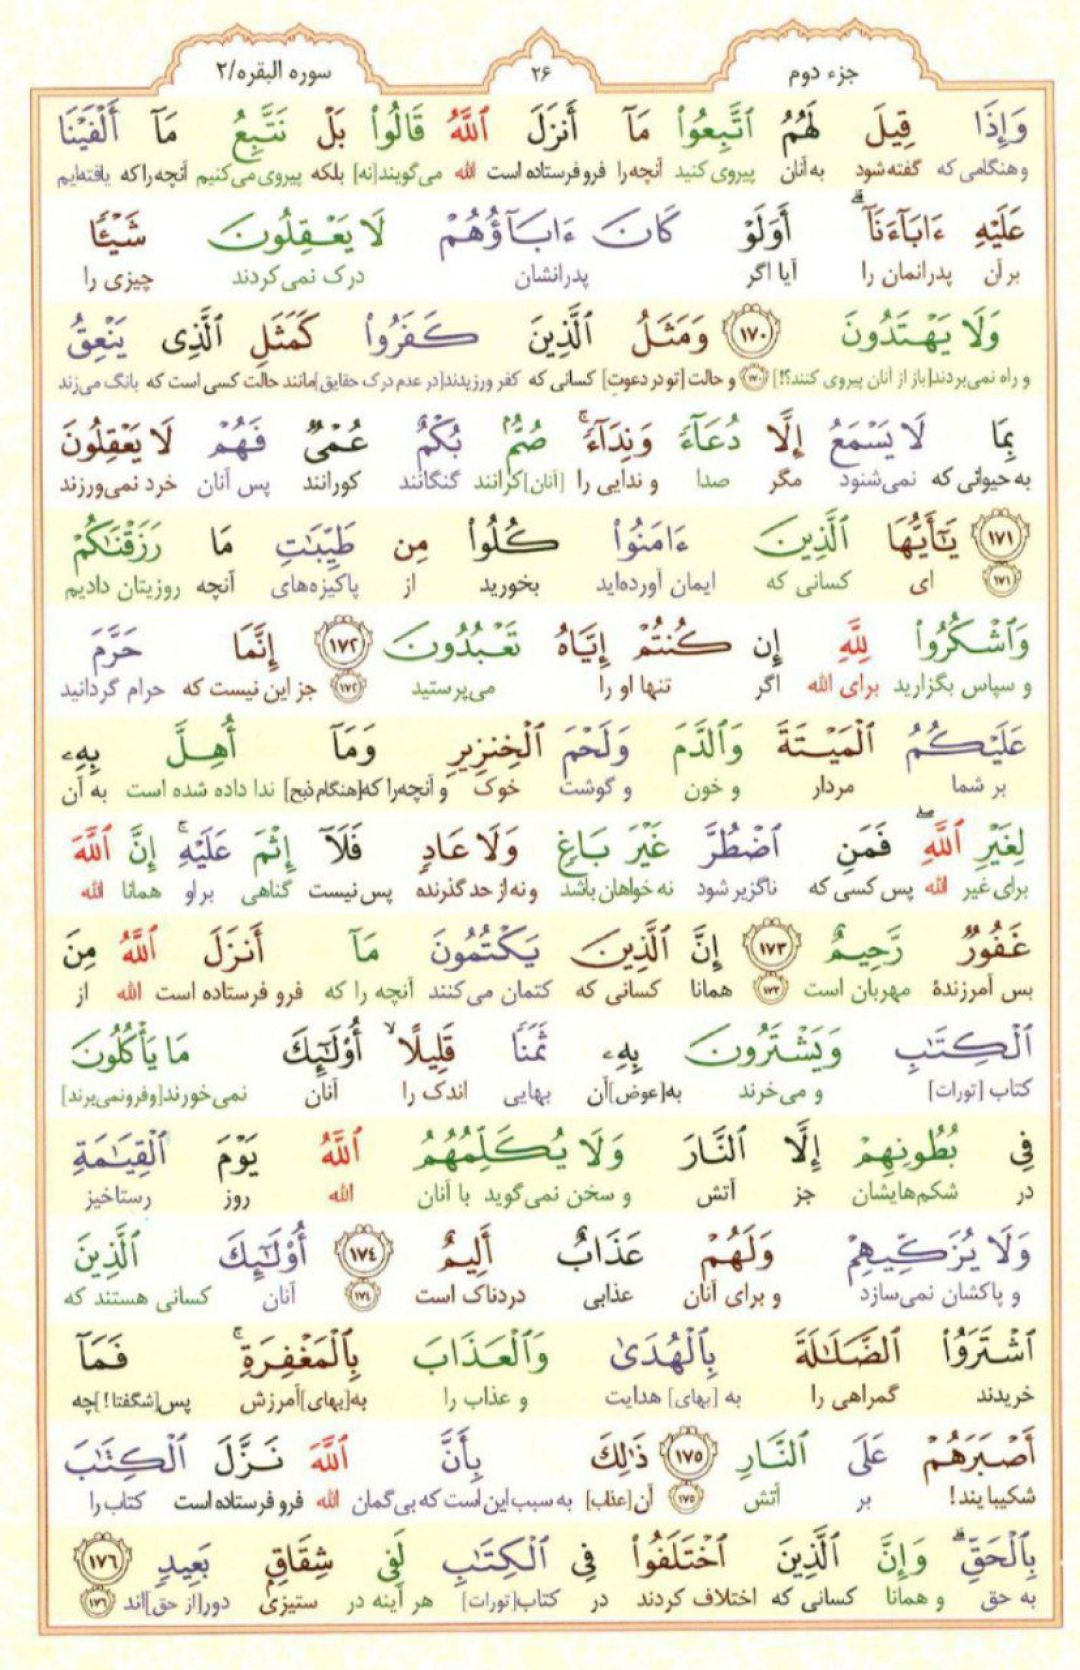 جزء دوم ۲۶ سوره البقره/۲
وَإِذَا قِيلَ لَهُمُ ٱتَّبِعُوا۟ مَآ أَنزَلَ ٱللَّهُ قَالُوا۟ بَلْ نَتَّبِعُ مَآ أَلْفَيْنَا
وهنگامی که گفته شود به آنان پیروی کنید آنچه را فرو فرستاده است الله می‌گویند[نه] بلکه پیروی می‌کنیم آنچه را که یافته‌ایم
عَلَيْهِ ءَابَآءَنَآ ۗ أَوَلَوْ كَانَ ءَابَآؤُهُمْ لَا يَعْقِلُونَ شَيْـًٔا
بر آن پدرانمان را آیا اگر پدرانشان درک نمی‌کردند چیزی را
وَلَا يَهْتَدُونَ ١٧٠ وَمَثَلُ ٱلَّذِينَ كَفَرُوا۟ كَمَثَلِ ٱلَّذِى يَنْعِقُ
و راه نمی‌بردند[باز از آنان پیروی کنند؟!] ۱۷۰ و حالت [تو در دعوت] کسانی که کفر ورزیدند[در عدم درک حقایق]مانند حالت کسی است که بانگ می‌زند
بِمَا لَا يَسْمَعُ إِلَّا دُعَآءً وَنِدَآءً ۚ صُمٌّۢ بُكْمٌ عُمْىٌ فَهُمْ لَا يَعْقِلُونَ
به حیوانی که نمی‌شنود مگر صدا و ندایی را [آنان]کرانند گنگانند کورانند پس آنان خرد نمی‌ورزند
١٧١ يَـٰٓأَيُّهَا ٱلَّذِينَ ءَامَنُوا۟ كُلُوا۟ مِن طَيِّبَـٰتِ مَا رَزَقْنَـٰكُمْ
۱۷۱ ای کسانی که ایمان آورده‌اید بخورید از پاکیزه‌های آنچه روزیتان دادیم
وَٱشْكُرُوا۟ لِلَّهِ إِن كُنتُمْ إِيَّاهُ تَعْبُدُونَ ١٧٢ إِنَّمَا حَرَّمَ
و سپاس بگزارید برای الله اگر تنها او را می‌پرستید ۱۷۲ جز این نیست که حرام گردانید
عَلَيْكُمُ ٱلْمَيْتَةَ وَٱلدَّمَ وَلَحْمَ ٱلْخِنزِيرِ وَمَآ أُهِلَّ بِهِۦ
بر شما مردار و خون و گوشت خوک و آنچه را که[هنگام ذبح] ندا داده شده است به آن
لِغَيْرِ ٱللَّهِ ۖ فَمَنِ ٱضْطُرَّ غَيْرَ بَاغٍ وَلَا عَادٍ فَلَآ إِثْمَ عَلَيْهِ ۚ إِنَّ ٱللَّهَ
برای غیر الله پس کسی که ناگزیر شود نه خواهان باشد و نه از حد گذرنده پس نیست گناهی بر او همانا الله
غَفُورٌ رَّحِيمٌ ١٧٣ إِنَّ ٱلَّذِينَ يَكْتُمُونَ مَآ أَنزَلَ ٱللَّهُ مِنَ
بس آمرزندهٔ مهربان است ۱۷۳ همانا کسانی که کتمان می‌کنند آنچه را که فرو فرستاده است الله از
ٱلْكِتَـٰبِ وَيَشْتَرُونَ بِهِۦ ثَمَنًا قَلِيلًا ۙ أُو۟لَـٰٓئِكَ مَا يَأْكُلُونَ
کتاب [تورات] و می‌خرند به[عوض]آن بهایی اندک را آنان نمی‌خورند[و فرو نمی‌برند]
فِى بُطُونِهِمْ إِلَّا ٱلنَّارَ وَلَا يُكَلِّمُهُمُ ٱللَّهُ يَوْمَ ٱلْقِيَـٰمَةِ
در شکم‌هایشان جز آتش و سخن نمی‌گوید با آنان الله روز رستاخیز
وَلَا يُزَكِّيهِمْ وَلَهُمْ عَذَابٌ أَلِيمٌ ١٧٤ أُو۟لَـٰٓئِكَ ٱلَّذِينَ
و پاکشان نمی‌سازد و برای آنان عذابی دردناک است ۱۷۴ آنان کسانی هستند که
ٱشْتَرَوُا۟ ٱلضَّلَـٰلَةَ بِٱلْهُدَىٰ وَٱلْعَذَابَ بِٱلْمَغْفِرَةِ ۚ فَمَآ
خریدند گمراهی را به [بهای] هدایت و عذاب را به[بهای]آمرزش پس[شگفتا!]چه
أَصْبَرَهُمْ عَلَى ٱلنَّارِ ١٧٥ ذَٰلِكَ بِأَنَّ ٱللَّهَ نَزَّلَ ٱلْكِتَـٰبَ
شکیبایند! بر آتش ۱۷۵ آن[عذاب] به سبب این است که بی‌گمان الله فرو فرستاده است کتاب را
بِٱلْحَقِّ ۗ وَإِنَّ ٱلَّذِينَ ٱخْتَلَفُوا۟ فِى ٱلْكِتَـٰبِ لَفِى شِقَاقٍۭ بَعِيدٍ ١٧٦
به حق و همانا کسانی که اختلاف کردند در کتاب[تورات] هر آینه در ستیزی دور[از حق]اند ۱۷۶